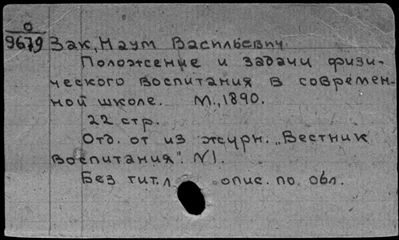 О
9679
Зак, Наум Васильевич
Положение и задачи физи-
ческого воспитания в современ-
ной школе. М., 1890.
22 стр.
Отд. от из журн. „Вестник
воспитания". N1.
Без тит. л опис. по обл.